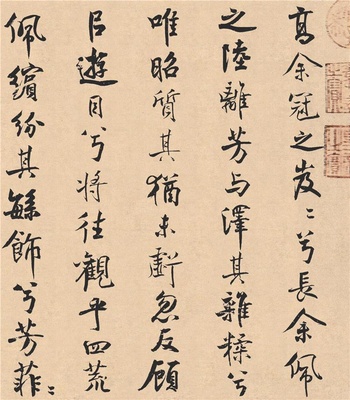 高余冠之岌〻兮長余佩
之陸離芳与澤其雜糅兮
唯昭質其猶未虧忽反顧
以遊目兮将往觀乎四荒
佩繽紛其繇飾兮芳菲〻